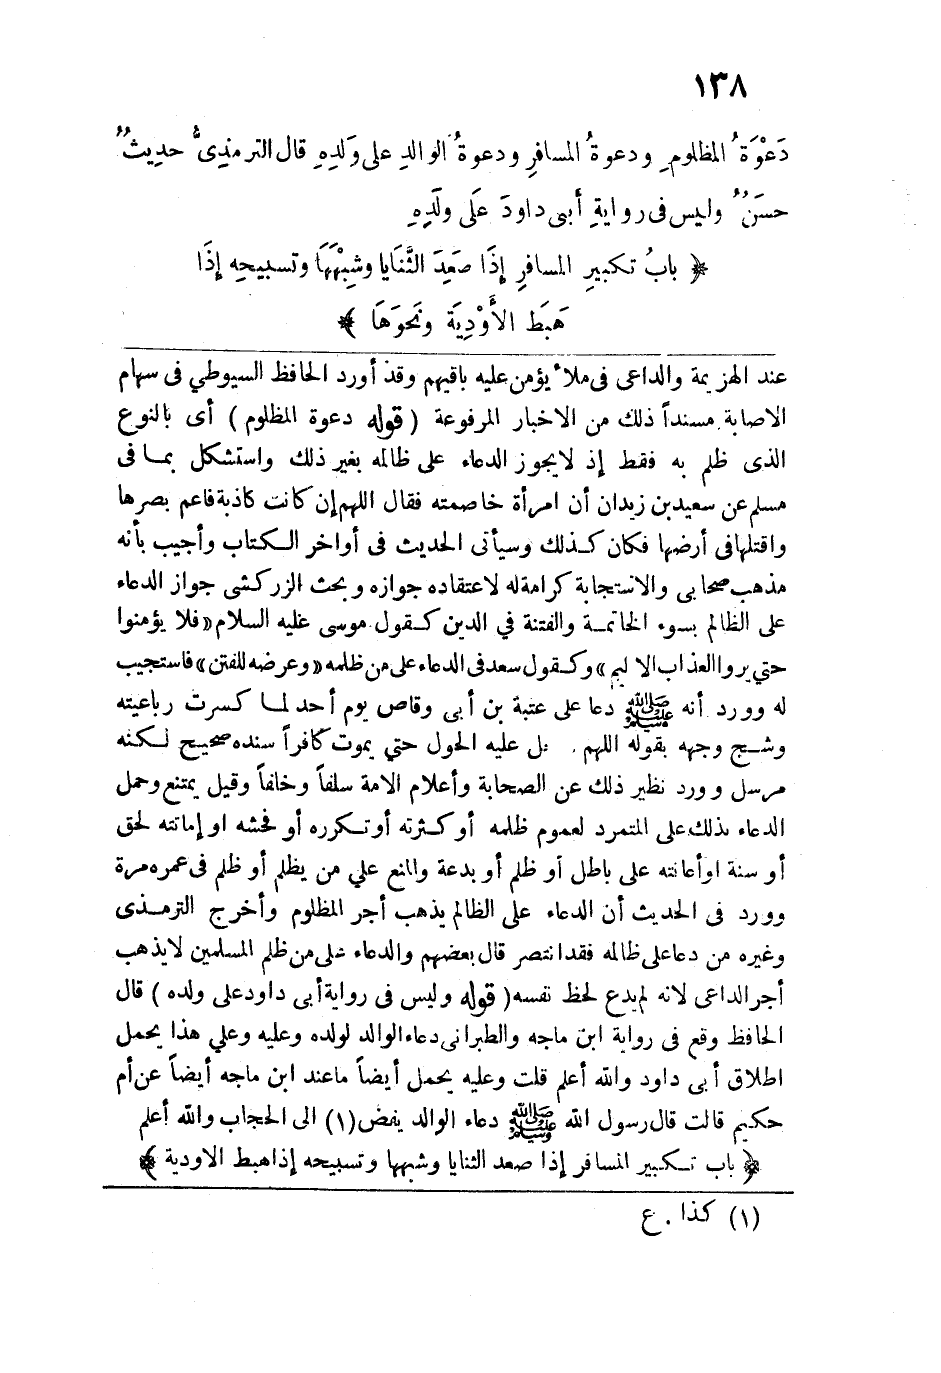 ١٣٨
دَعْوَةُ المظلومِ ودعوةُ المسافرِ ودعوةُ الوالدِ على وَلدِهِ قال الترمذىُّ حديثٌ
حسَنٌ وليس فى روايةِ أبى داودَ عَلَى ولَدِهِ
﴿ بابُ تكبيرِ المسافرِ إذَا صَعِدَ الثَّنَايا وشِبْهَهَا وتسبيحِه إذَا
هَبَطَ الأَوْدِيَةَ ونَحوَهَا ﴾
عند الهزيمة والداعى فى ملأ يؤمن عليه باقيهم وقد أورد الحافظ السيوطي فى سهام
الاصابة مسنداً ذلك من الاخبار المرفوعة ( قوله دعوة المظلوم ) أى بالنوع
الذى ظلم به فقط إذ لا يجوز الدعاء على ظالمه بغير ذلك واستشكل بما فى
مسلم عن سعيد بن زيد ان أن امرأة خاصمته فقال اللهم إن كانت كاذبة فاعم بصرها
واقتلها فى أرضها فكان كذلك وسيأتى الحديث فى أواخر الكتاب وأجيب بأنه
مذهب صحابى والاستجابة كرامة له لاعتقاده جوازه وبحث الزركشى جواز الدعاء
على الظالم بسوء الخاتمة والفتنة في الدين كقول موسى عليه السلام «فلا يؤمنوا
حتي يروا العذاب الاليم» وكقول سعد فى الدعاء على من ظلمه «وعرضه للفتن» فاستجيب
له وورد أنه ﷺ دعا على عتبة بن أبى وقاص يوم أحد لما كسرت رباعيته
وشج وجهه بقوله اللهم عليه الحول حتي يموت كافراً سنده صحيح لكنه
مرسل وورد نظير ذلك عن الصحابة وأعلام الامة سلفاً وخلفاً وقيل يمتنع وحمل
الدعاء بذلك على المتمرد لعموم ظلمه أو كثرته أو تكرره أو فحشه او إماتته لحق
أو سنة او أعانته على باطل أو ظلم أو بدعة والمنع علي من يظلم أو ظلم فى عمره مرة
وورد فى الحديث أن الدعاء على الظالم يذهب أجر المظلوم وأخرج الترمذى
وغيره من دعا على ظالمه فقد انتصر قال بعضهم والدعاء على من ظلم المسلمين لا يذهب
أجر الداعى لانه لم يدع لحظ نفسه ( قوله وليس فى رواية أبى داود على ولده ) قال
الحافظ وقع فى رواية ابن ماجه والطبرانى دعاء الوالد لولده وعليه وعلي هذا يحمل
اطلاق أبى داود والله أعلم قلت وعليه يحمل أيضاً ما عند ابن ماجه أيضاً عن أم
حكيم قالت قال رسول الله ﷺ دعاء الوالد يفض (١) الى الحجاب والله أعلم
﴿ باب تكبير المسافر إذا صعد الثنايا وشبهها وتسبيحه إذا هبط الاودية ﴾
(١) كذا . ع